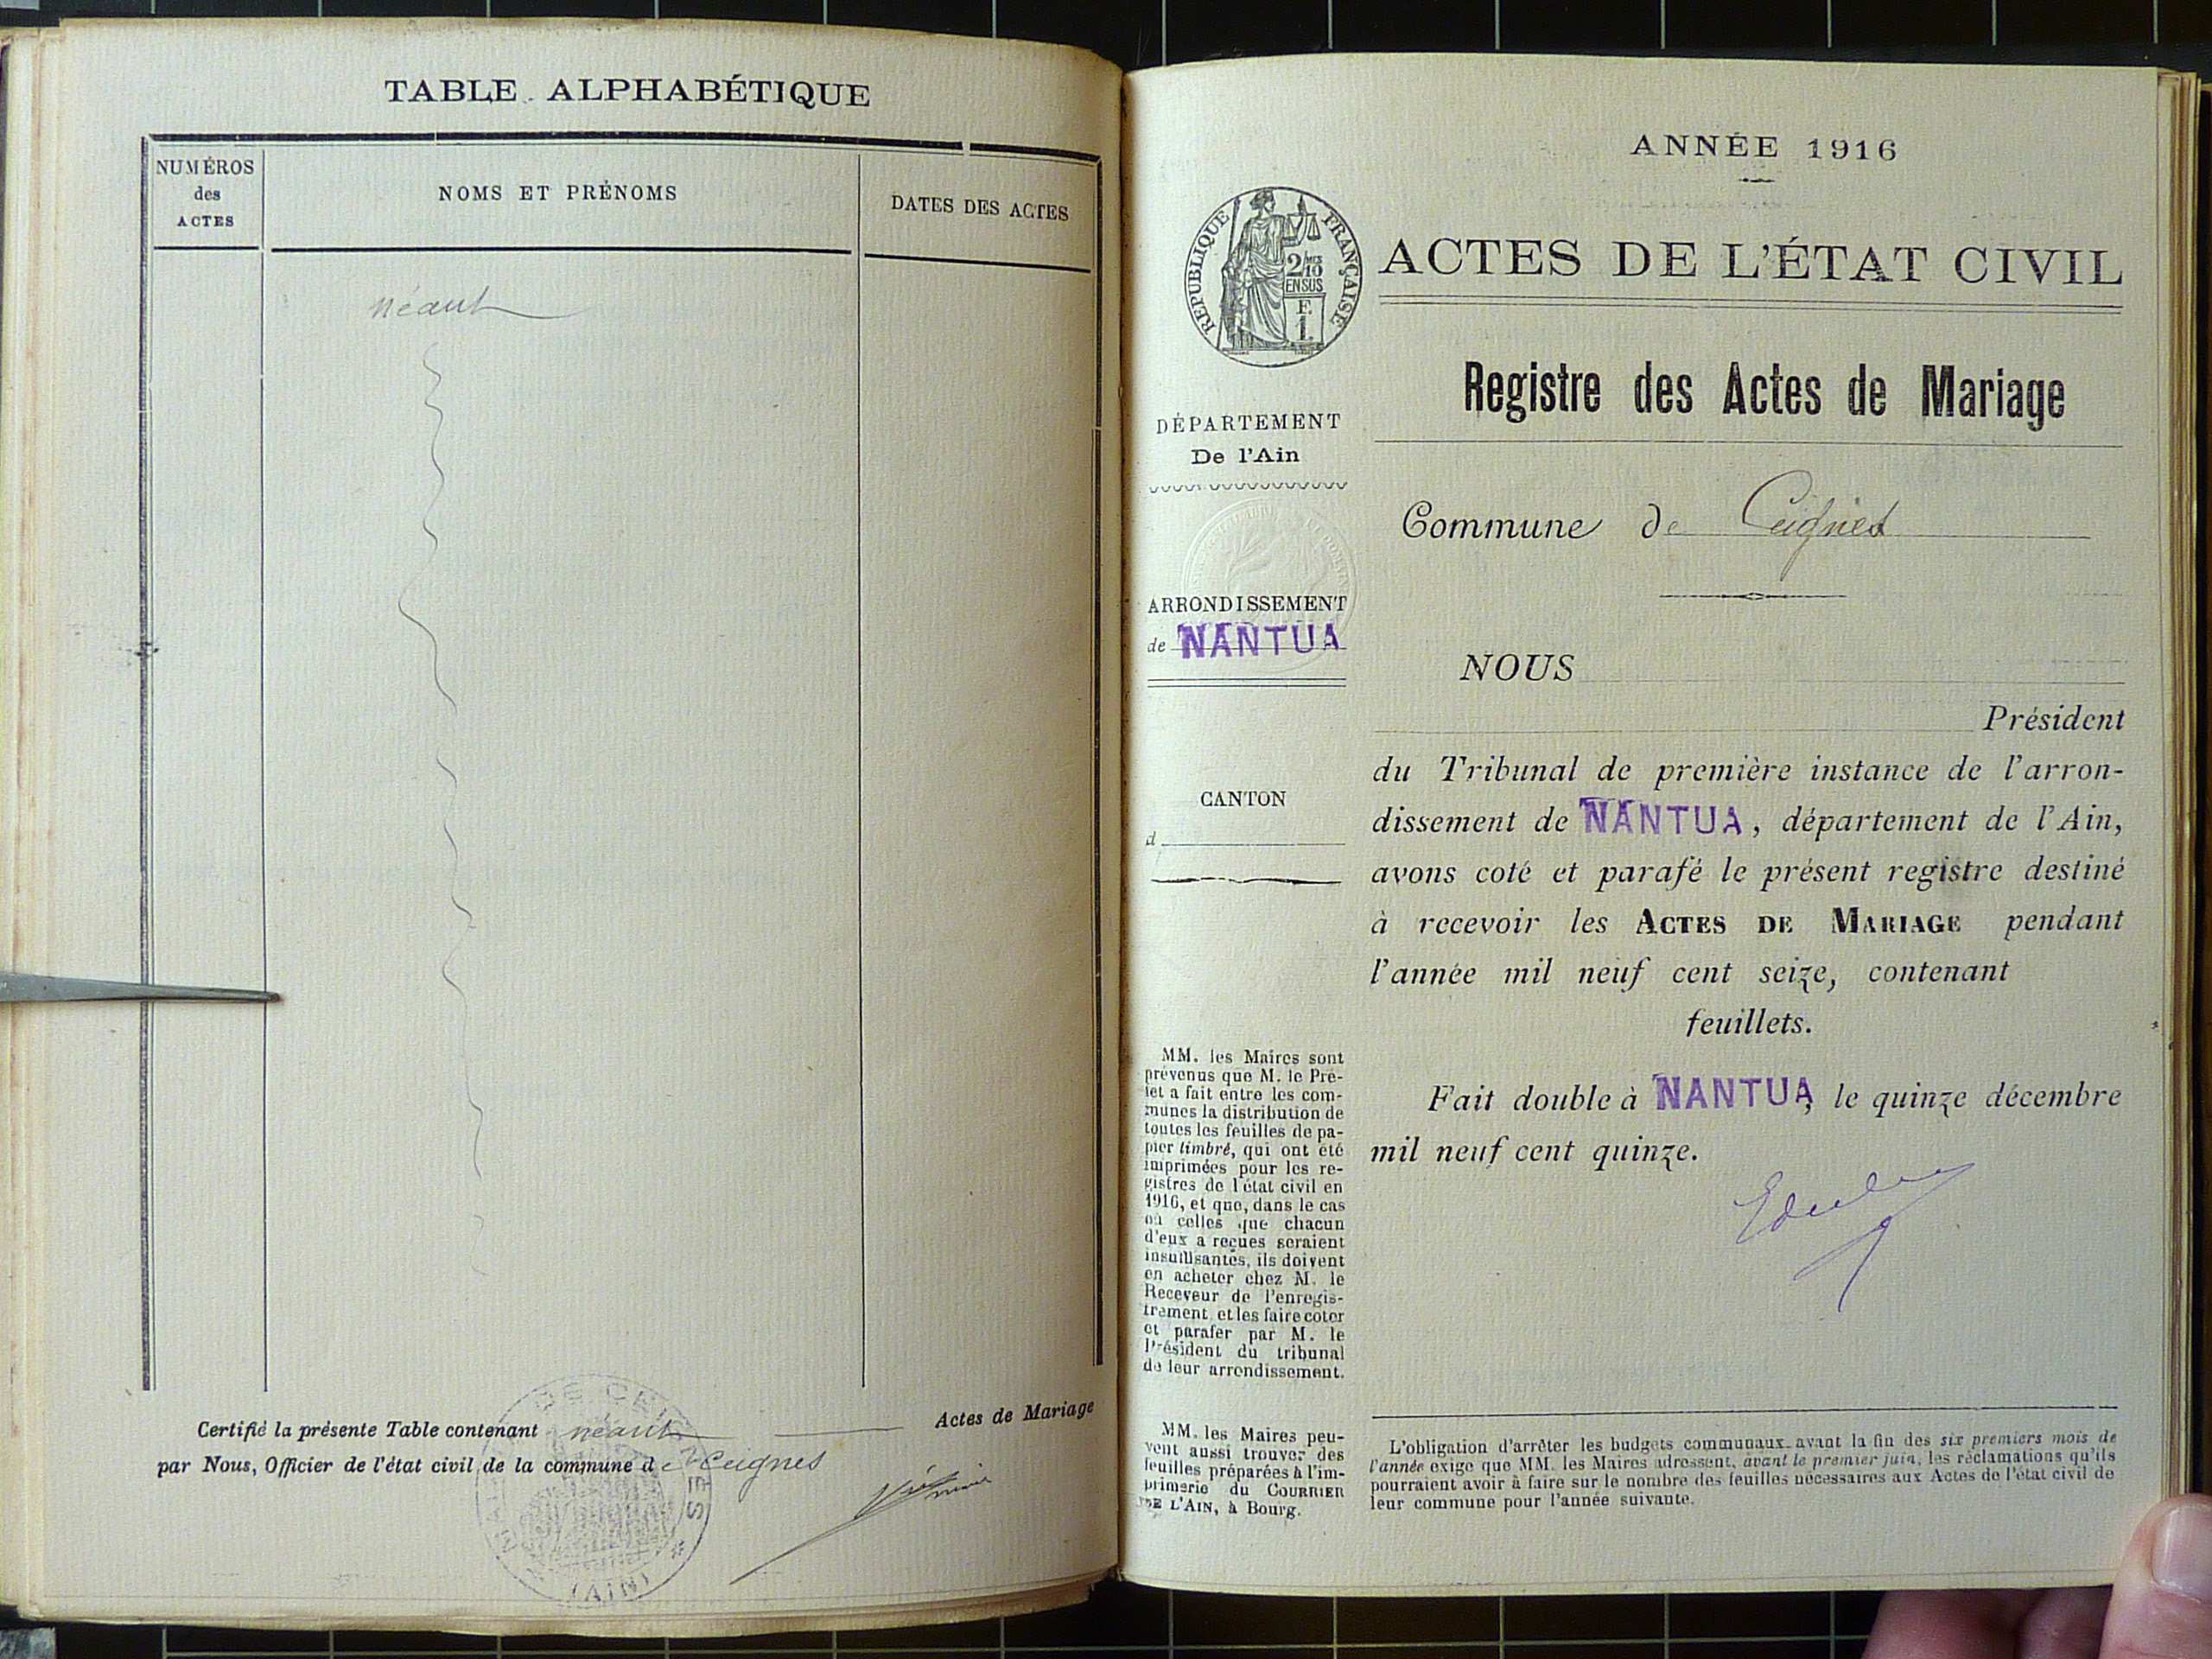 TABLE ALPHABÉTIQUE
NUMÉROS
des
ACTES
NOMS ET PRÉNOMS
DATES DES ACTES
néant
Certifié la présente Table contenant néant Actes de Mariage
par Nous, Officier de l'état civil de la commune de Ceignes
(AIN)
ANNÉE 1916
RÉPUBLIQUE FRANÇAISE
2/10
EN SUS
F.
1.
ACTES DE L'ÉTAT CIVIL
Registre des Actes de Mariage
DÉPARTEMENT
De l'Ain
Commune de Ceignes
ARRONDISSEMENT
de NANTUA
CANTON
d
NOUS
Président
du Tribunal de première instance de l'arron-
dissement de NANTUA, département de l'Ain,
avons coté et parafé le présent registre destiné
à recevoir les ACTES DE MARIAGE pendant
l'année mil neuf cent seize, contenant
feuillets.
Fait double à NANTUA, le quinze décembre
mil neuf cent quinze.
MM. les Maires sont
prévenus que M. le Pré-
fet a fait entre les com-
munes la distribution de
toutes les feuilles de pa-
pier timbré, qui ont été
imprimées pour les re-
gistres de l'état civil en
1916, et que, dans le cas
où celles que chacun
d'eux a reçues seraient
insuffisantes, ils doivent
en acheter chez M. le
Receveur de l'enregis-
trement et les faire coter
et parafer par M. le
Président du tribunal
de leur arrondissement.
MM. les Maires peu-
vent aussi trouver des
feuilles préparées à l'im-
primerie du COURRIER
DE L'AIN, à Bourg.
L'obligation d'arrêter les budgets communaux avant la fin des six premiers mois de
l'année exige que MM. les Maires adressent, avant le premier juin, les réclamations qu'ils
pourraient avoir à faire sur le nombre des feuilles nécessaires aux Actes de l'état civil de
leur commune pour l'année suivante.